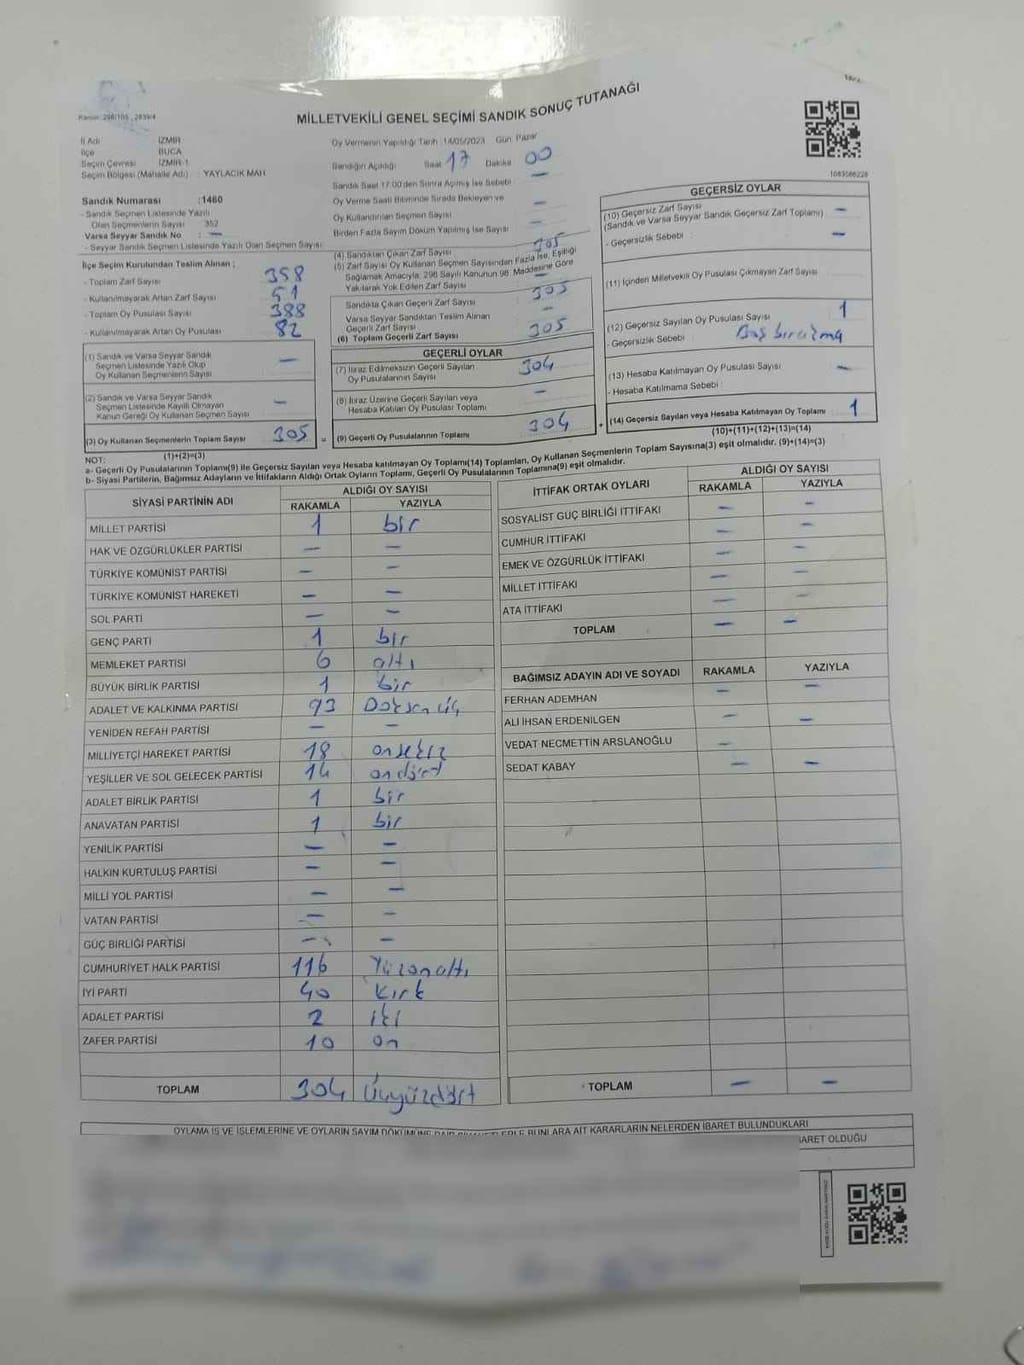 MİLLETVEKİLİ GENEL SEÇİMİ SANDIK SONUÇ TUTANAĞI
İl Adı : İZMİR
İlçe : BUCA
Seçim Çevresi : İZMİR-1
Seçim Bölgesi (Mahalle Adı) : YAYLACIK MAH.
Sandık Numarası :1460
- Sandık Seçmen Listesinde Yazılı
Olan Seçmenlerin Sayısı : 352
Varsa Seyyar Sandık No : —
- Seyyar Sandık Seçmen Listesinde Yazılı Olan Seçmen Sayısı
Oy Vermenin Yapıldığı Tarih 14/05/2023 Gün Pazar
Sandığın Açıldığı Saat 17 Dakika 00
Sandık Saat 17:00'den Sonra Açılmış İse Sebebi —
Oy Verme Saati Bitiminde Sırada Bekleyen ve
Oy Kullandırılan Seçmen Sayısı —
Birden Fazla Sayım Döküm Yapılmış İse Sayısı —
İlçe Seçim Kurulundan Teslim Alınan ;
- Toplam Zarf Sayısı 358
- Kullanılmayarak Artan Zarf Sayısı 51
- Toplam Oy Pusulası Sayısı 388
- Kullanılmayarak Artan Oy Pusulası 82
(1) Sandık ve Varsa Seyyar Sandık
Seçmen Listesinde Yazılı Olup
Oy Kullanan Seçmenlerin Sayısı —
(2) Sandık ve Varsa Seyyar Sandık
Seçmen Listesinde Kayıtlı Olmayan
Kanun Gereği Oy Kullanan Seçmen Sayısı —
(3) Oy Kullanan Seçmenlerin Toplam Sayısı 305
(1)+(2)=(3)
(4) Sandıktan Çıkan Zarf Sayısı 305
(5) Zarf Sayısı Oy Kullanan Seçmen Sayısından Fazla İse, Eşitliği
Sağlamak Amacıyla; 298 Sayılı Kanunun 98. Maddesine Göre
Yakılarak Yok Edilen Zarf Sayısı —
Sandıkta Çıkan Geçerli Zarf Sayısı 305
Varsa Seyyar Sandıktan Teslim Alınan
Geçerli Zarf Sayısı —
(6) Toplam Geçerli Zarf Sayısı 305
GEÇERLİ OYLAR
(7) İtiraz Edilmeksizin Geçerli Sayılan
Oy Pusulalarının Sayısı 304
(8) İtiraz Üzerine Geçerli Sayılan veya
Hesaba Katılan Oy Pusulası Toplamı —
(9) Geçerli Oy Pusulalarının Toplamı 304
1083566228
GEÇERSİZ OYLAR
(10) Geçersiz Zarf Sayısı —
(Sandık ve Varsa Seyyar Sandık Geçersiz Zarf Toplamı)
- Geçersizlik Sebebi : —
(11) İçinden Milletvekili Oy Pusulası Çıkmayan Zarf Sayısı
(12) Geçersiz Sayılan Oy Pusulası Sayısı 1
- Geçersizlik Sebebi : Boş bırakma
(13) Hesaba Katılmayan Oy Pusulası Sayısı —
- Hesaba Katılmama Sebebi :
(14) Geçersiz Sayılan veya Hesaba Katılmayan Oy Toplamı 1
(10)+(11)+(12)+(13)=(14)
NOT:
a- Geçerli Oy Pusulalarının Toplamı(9) ile Geçersiz Sayılan veya Hesaba katılmayan Oy Toplamı(14) Toplamları, Oy Kullanan Seçmenlerin Toplam Sayısına(3) eşit olmalıdır. (9)+(14)=(3)
b- Siyasi Partilerin, Bağımsız Adayların ve İttifakların Aldığı Ortak Oyların Toplamı, Geçerli Oy Pusulalarının Toplamına(9) eşit olmalıdır.
SİYASİ PARTİNİN ADI ALDIĞI OY SAYISI
RAKAMLA YAZIYLA
MİLLET PARTİSİ 1 bir
HAK VE ÖZGÜRLÜKLER PARTİSİ — —
TÜRKİYE KOMÜNİST PARTİSİ — —
TÜRKİYE KOMÜNİST HAREKETİ — —
SOL PARTİ — —
GENÇ PARTİ 1 bir
MEMLEKET PARTİSİ 6 altı
BÜYÜK BİRLİK PARTİSİ 1 bir
ADALET VE KALKINMA PARTİSİ 93 Doksan üç
YENİDEN REFAH PARTİSİ — —
MİLLİYETÇİ HAREKET PARTİSİ 18 onsekiz
YEŞİLLER VE SOL GELECEK PARTİSİ 14 ondört
ADALET BİRLİK PARTİSİ 1 bir
ANAVATAN PARTİSİ 1 bir
YENİLİK PARTİSİ — —
HALKIN KURTULUŞ PARTİSİ — —
MİLLİ YOL PARTİSİ — —
VATAN PARTİSİ — —
GÜÇ BİRLİĞİ PARTİSİ — —
CUMHURİYET HALK PARTİSİ 116 Yüzonaltı
İYİ PARTİ 40 kırk
ADALET PARTİSİ 2 iki
ZAFER PARTİSİ 10 on
TOPLAM 304 Üçyüzdört
İTTİFAK ORTAK OYLARI ALDIĞI OY SAYISI
RAKAMLA YAZIYLA
SOSYALİST GÜÇ BİRLİĞİ İTTİFAKI — —
CUMHUR İTTİFAKI — —
EMEK VE ÖZGÜRLÜK İTTİFAKI — —
MİLLET İTTİFAKI — —
ATA İTTİFAKI — —
TOPLAM — —
BAĞIMSIZ ADAYIN ADI VE SOYADI RAKAMLA YAZIYLA
FERHAN ADEMHAN — —
ALİ İHSAN ERDENİLGEN — —
VEDAT NECMETTİN ARSLANOĞLU —
SEDAT KABAY — —
TOPLAM — —
OYLAMA İŞ VE İŞLEMLERİNE VE OYLARIN SAYIM DÖKÜMÜNE BUNLARA AİT KARARLARIN NELERDEN İBARET BULUNDUKLARI
İBARET OLDUĞU